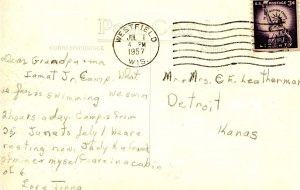 POST CARD
CORRESPONDENCE
WESTFIELD
JUL 1
4 PM
1957
WIS.
U.S. POSTAGE 3¢
LIBERTY
Dear Grandpa + ma
I am at Jr. Camp. What
is for is swimming we swim
2 hours a day. Camp is from
25 June to July 1 be are
resting now. Judy
myself are in a cabin
of 6
Love
Mr + Mrs. C.E. Leatherman
Detroit
Kanas